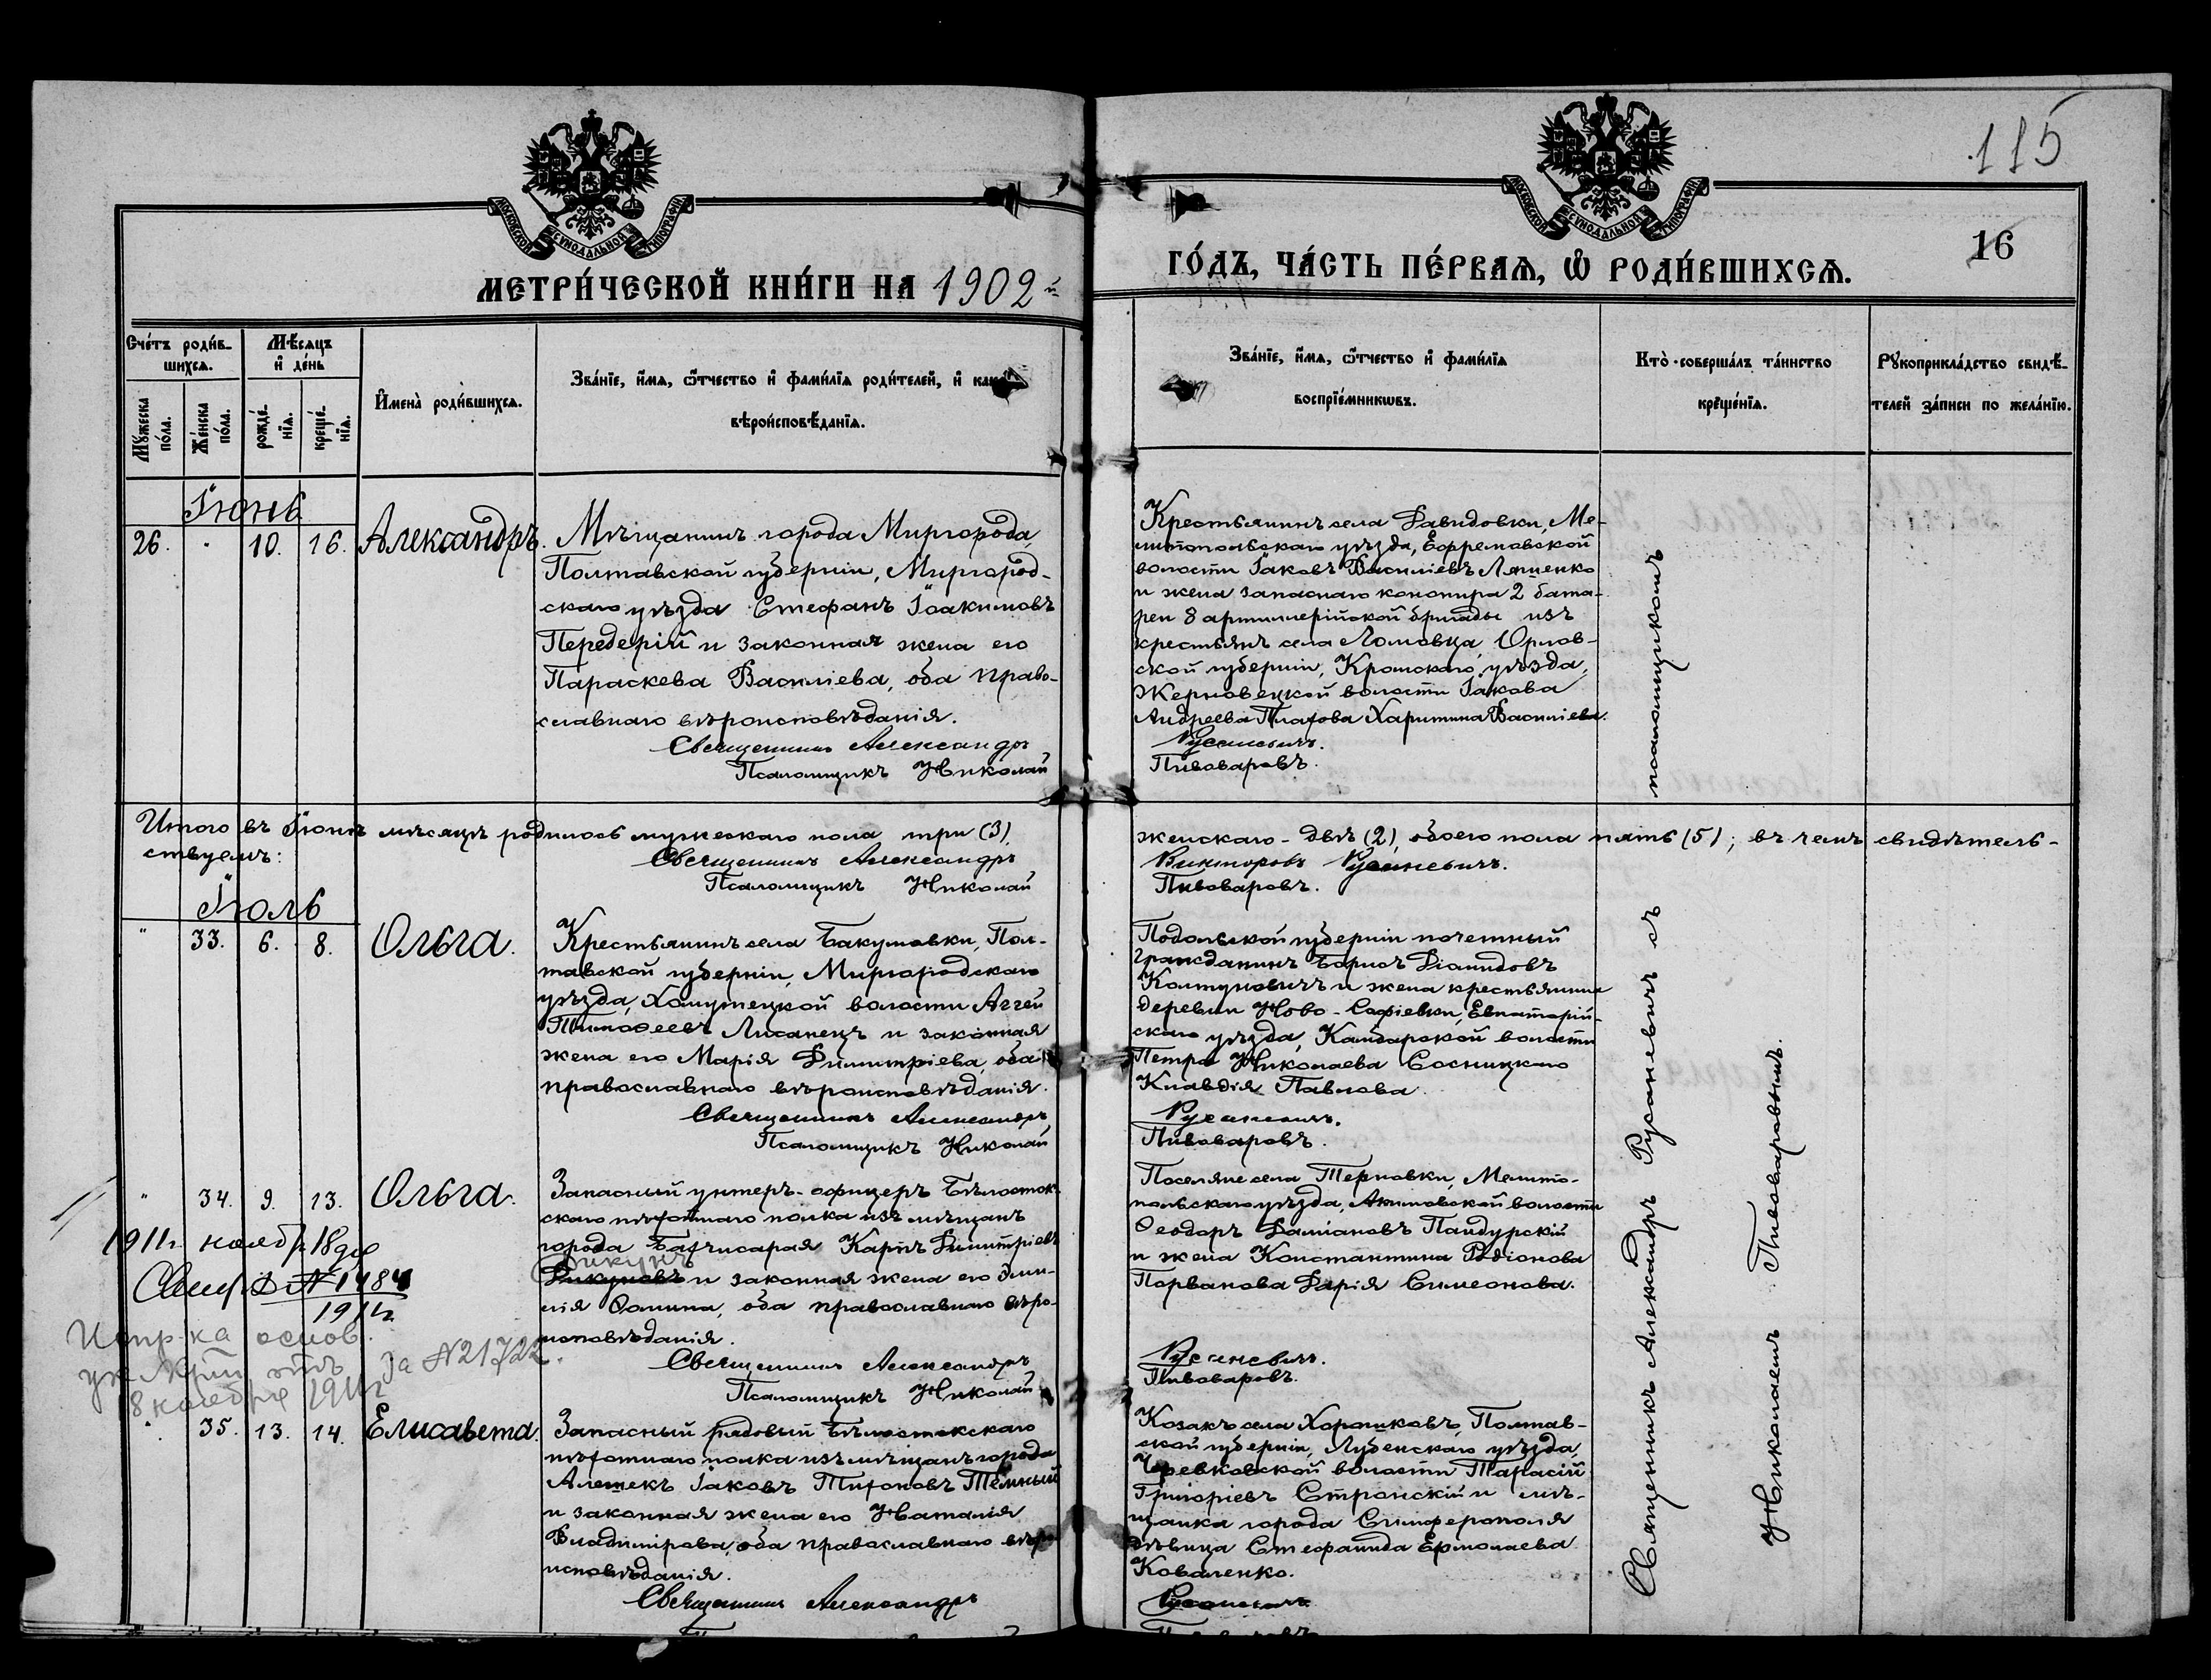 115
16
МОСКОВСКОЙ СѴНОДАЛЬНОЙ ТИПОГРАФІИ
МОСКОВСКОЙ СѴНОДАЛЬНОЙ ТИПОГРАФІИ
МЕТРИ́ЧЕСКОЙ КНИ́ГИ НА 1902й
ГО́ДЪ, ЧА́СТЬ ПЕ́РВАѦ, Ѡ҆ РОДИ́ВШИХСѦ.
Сче́тъ роди́в-
шихсѧ.
Мѣ́сѧцъ
и҆ де́нь
Мꙋ́жеска
по́ла.
Же́нска
по́ла.
рожде́-
нїѧ.
креще́-
нїѧ.
И҆мена̀ роди́вшихсѧ.
Зва́нїе, и҆́мѧ, ѻ҆́тчество и҆ фами́лїѧ роди́телей, и҆
вѣроисповѣ́данїѧ.
Зва́нїе, и҆́мѧ, ѻ҆́тчество и҆ фами́лїѧ
воспрїе́мникѡвъ.
Кто̀ соверша́лъ та́инство
креще́нїѧ.
Рꙋкоприкла́дство свидѣ́-
телей за́писи по жела́нїю.
Іюнь
26. " 10. 16. Александръ.
Мѣщанинъ города Миргорода,
Полтавской губерніи, Миргород-
скаго уѣзда Стефанъ Іоакимовъ
Передерій и законная жена его
Параскева Василіева, оба право-
славнаго вѣроисповѣданія.
Священникъ Александръ
Псаломщикъ Николай
Крестьянинъ села Давидовки, Ме-
литопольскаго уѣзда, Ефремовской
волости Іаковъ Василіевъ Ляшенко
и жена запаснаго канонира 2 бата-
реи 8 артиллерійской бригады изъ
крестьянъ села Ломовца, Орлов-
ской губерніи, Кромскаго уѣзда,
Жерновецкой волости Іакова
Андреева Платова Харитина Василіева.
Русаневичъ.
Пивоваровъ.
Итого въ Іюнѣ мѣсяцѣ родилось мужескаго пола три (3), женскаго - двѣ (2), обоего пола пять (5); въ чемъ свидѣтель-
ствуемъ:
Священникъ Александръ Викторовъ Русаневичъ.
Псаломщикъ Николай Пивоваровъ.
Іюль
" 33. 6. 8. Ольга.
Крестьянинъ села Бакумовки, Пол-
тавской губерніи, Миргородскаго
уѣзда, Хомутецкой волости Аггей
Тимоѳеевъ Лисанецъ и законная
жена его Марія Димитріева, оба
православнаго вѣроисповѣданія.
Священникъ Александръ
Псаломщикъ Николай
Подольской губерніи почетный
гражданинъ Борисъ Діомидовъ
Колтуновичъ и жена крестьянина
деревни Ново-Софіевки, Евпаторій-
скаго уѣзда, Камбарской волости
Петра Николаева Сосницкаго
Клавдія Павлова.
Русаневичъ.
Пивоваровъ.
" 34. 9. 13. Ольга.
Запасный унтеръ-офицеръ Бѣлосток-
скаго пѣхотнаго полка изъ мѣщанъ
города Бахчисарая Карпъ Димитріевъ
Дикунъ
Дикуновъ и законная жена его Эми-
лія Ѳомина, оба православнаго вѣро-
исповѣданія.
Священникъ Александръ
Псаломщикъ Николай
Поселяне села Терновки, Мелито-
польскаго уѣзда, Акимовской волости
Ѳеодоръ Даміановъ Пандурскій
и жена Константина Родіонова
Порванова Дарія Симеонова.
Русаневичъ.
Пивоваровъ.
1911г. ноябр 18 дня
№ 1484
1911г.
основ.
за № 21722.
18 ноября 1911г
" 35. 13. 14. Елисавета.
Запасный рядовый Бѣлостокскаго
пѣхотнаго полка изъ мѣщанъ города
Алешекъ Іаковъ Тихоновъ Тёмный
и законная жена его Наталія
Владимірова, оба православнаго вѣро-
исповѣданія.
Священникъ Александръ
Козакъ села Хорошковъ, Полтав-
ской губерніи, Лубенскаго уѣзда,
Чревковской волости Тарасій
Григоріевъ Стронскій и мѣ-
щанка города Симферополя
дѣвица Стефанида Ермолаева
Коваленко.
Русаневичъ.
Священникъ Александръ Русаневичъ съ псаломщикомъ
Николаемъ Пивоваровымъ.